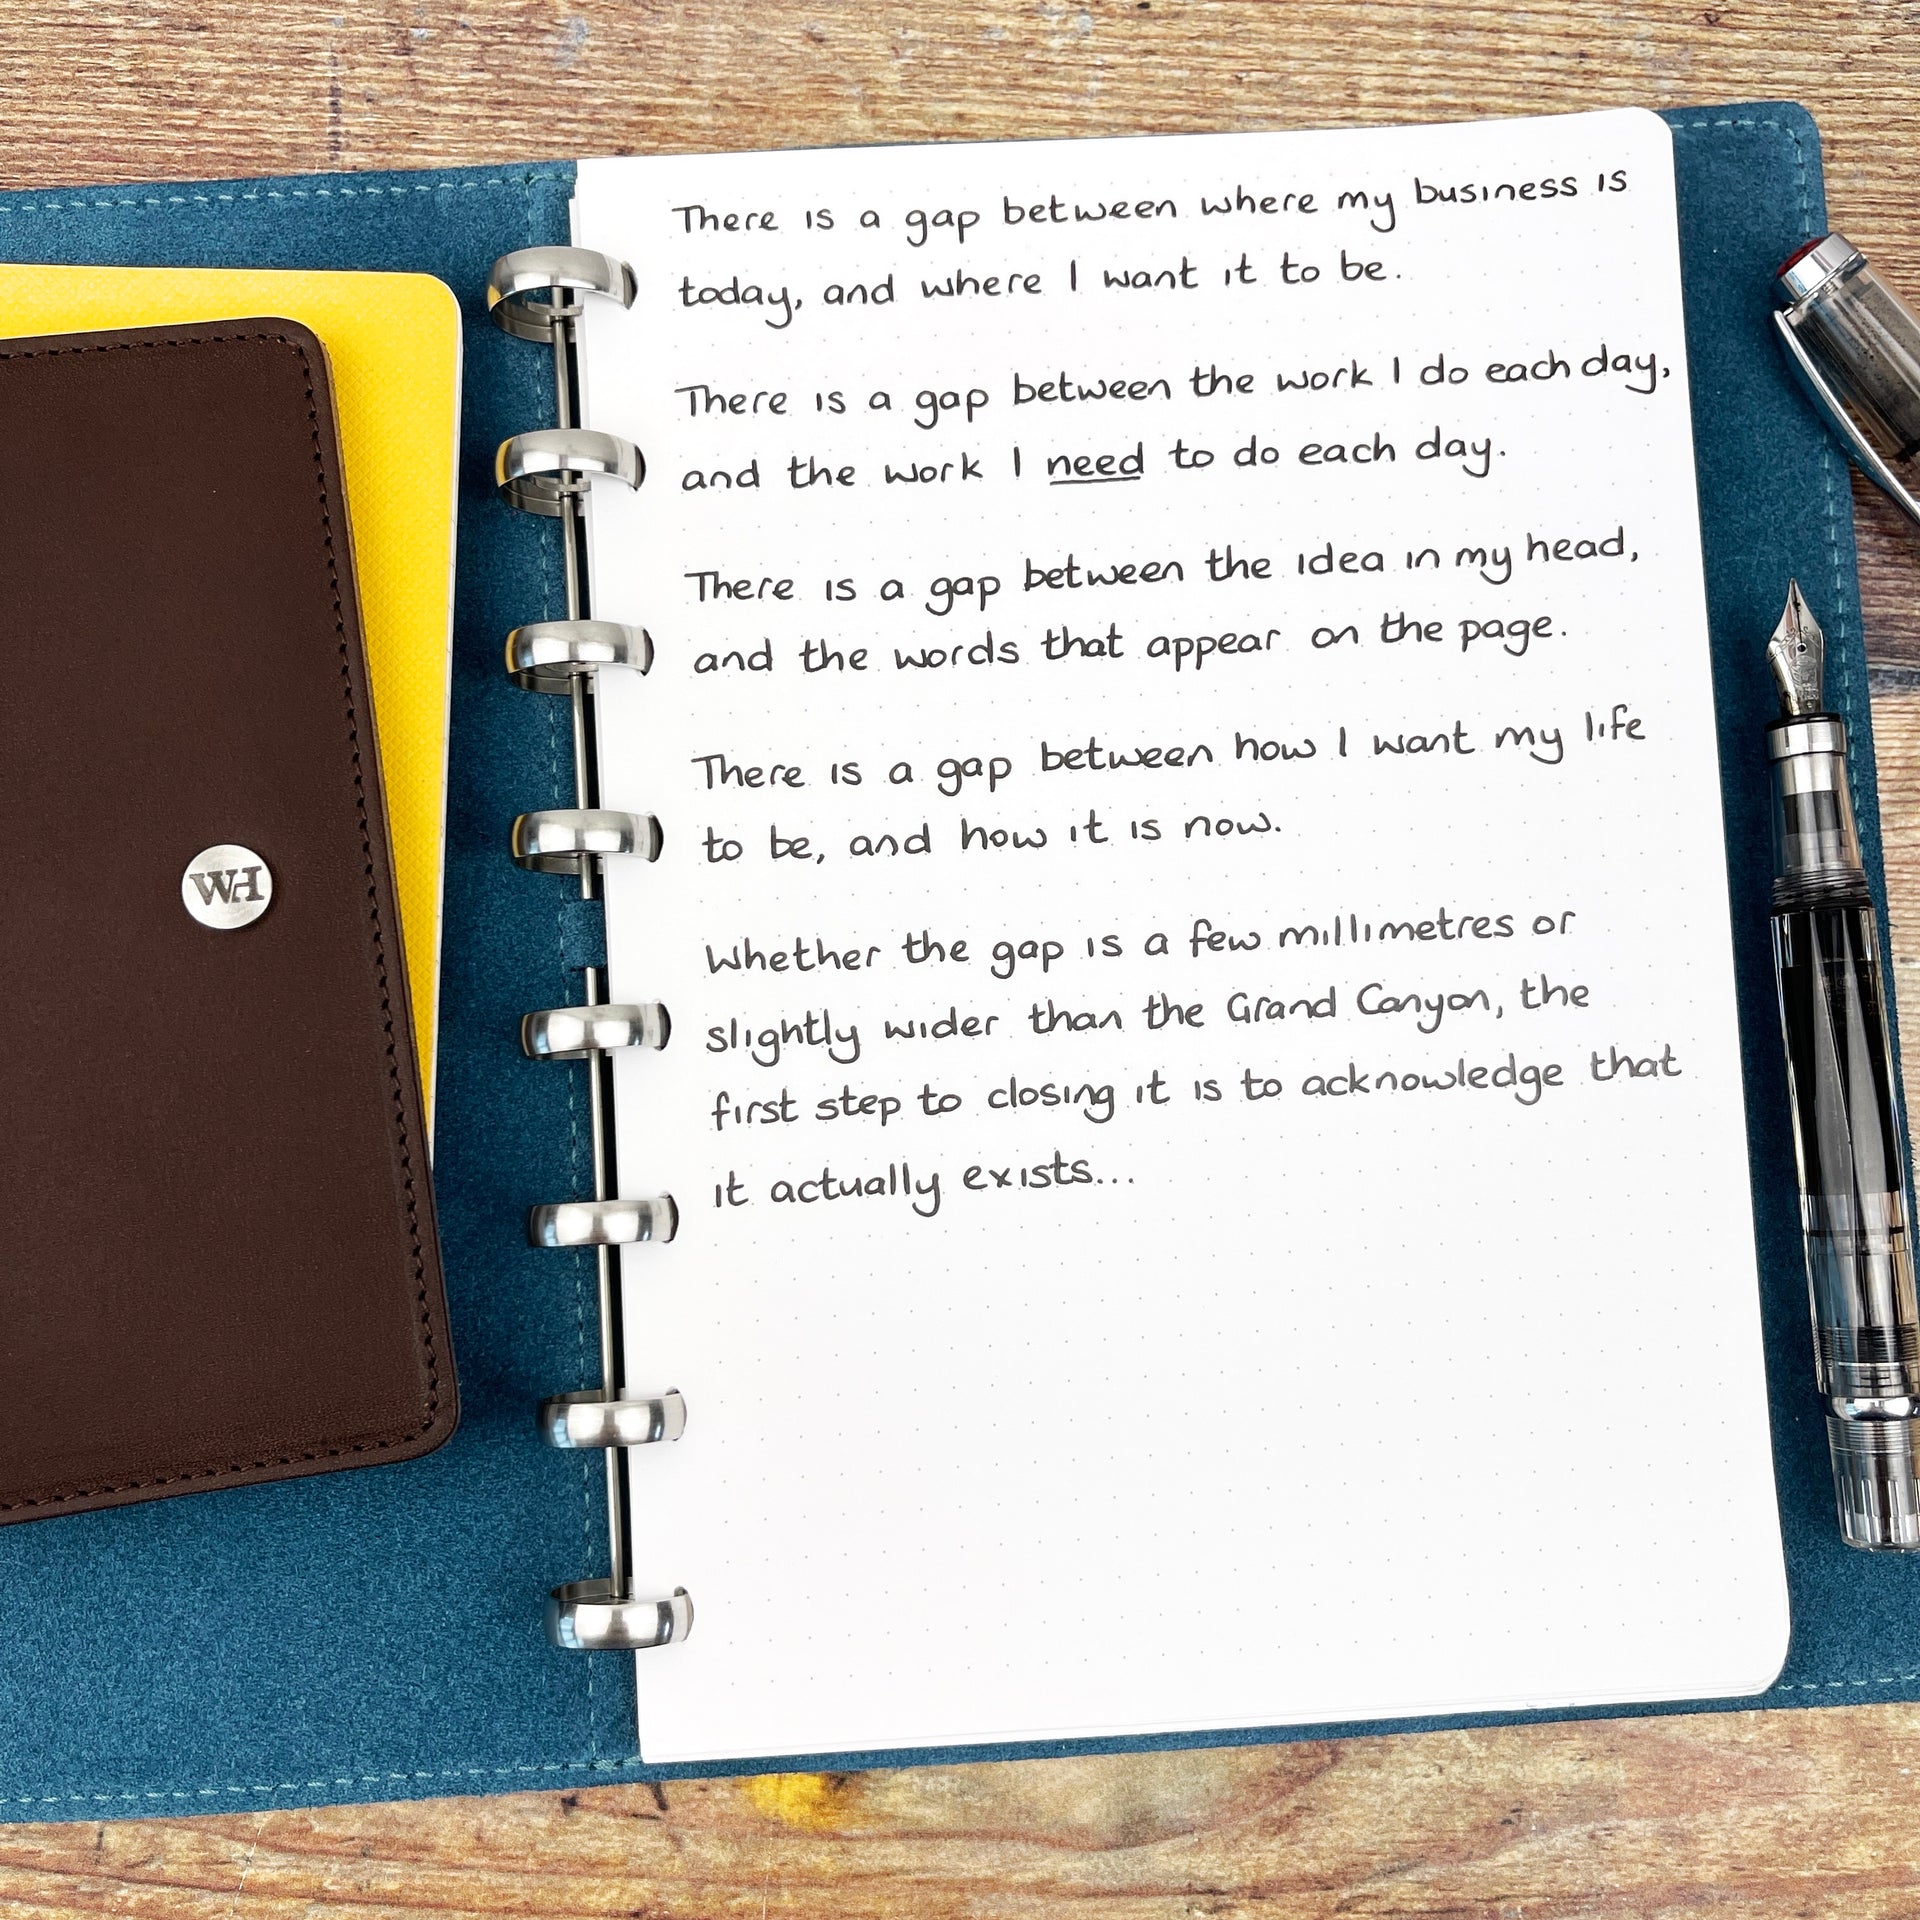 There is a gap between where my business is
today, and where I want it to be.
There is a gap between the work I do each day,
and the work I need to do each day.
There is a gap between the idea in my head,
and the words that appear on the page.
There is a gap between how I want my life
to be, and how it is now.
Whether the gap is a few millimetres or
slightly wider than the Grand Canyon, the
first step to closing it is to acknowledge that
it actually exists...
WH